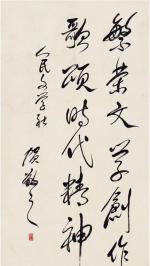 繁荣文学创作
歌颂时代精神
人民文学社